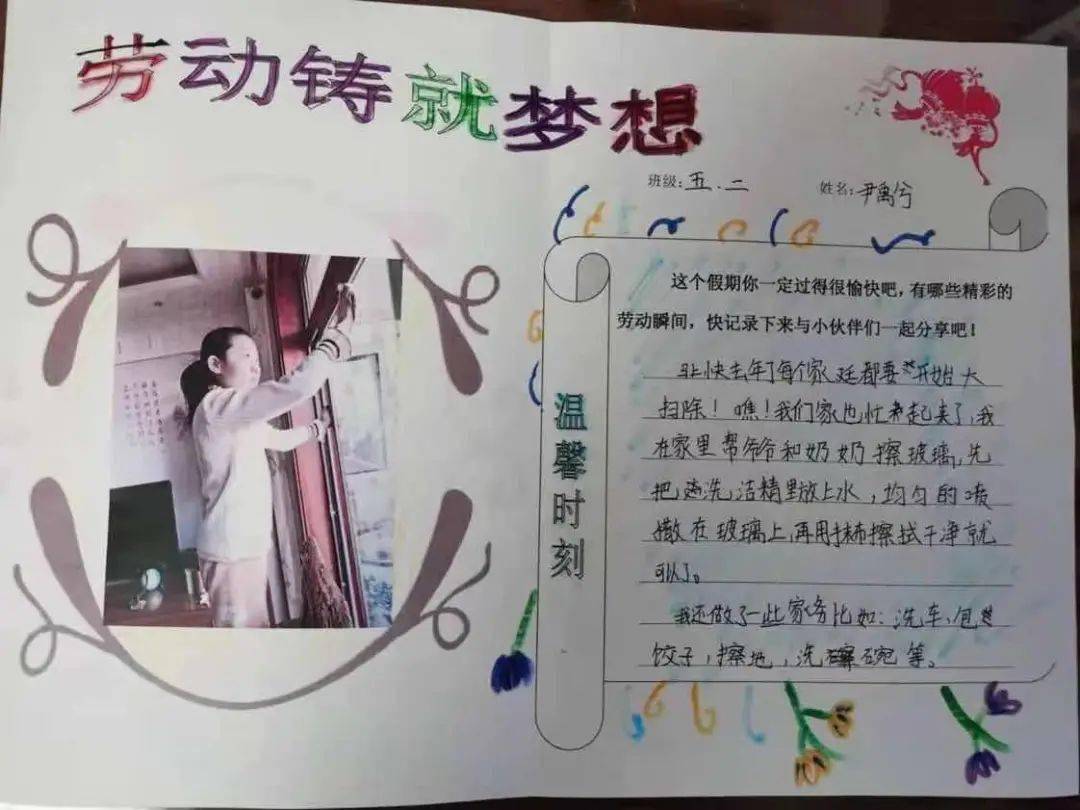 劳动铸就梦想
班级：五.二
姓名：尹禹兮
这个假期你一定过得很愉快吧，有哪些精彩的
劳动瞬间，快记录下来与小伙伴们一起分享吧！
温馨时刻
快去年了每个家庭都要开始大
扫除！瞧！我们家也忙起来了，我
在家里帮爷爷和奶奶擦玻璃，先
把洗洁精里放上水，均匀的喷
撒在玻璃上，再用抹布擦拭干净就
可以了。
我还做了一些家务比如：洗车、包
饺子，擦地，洗碗等。